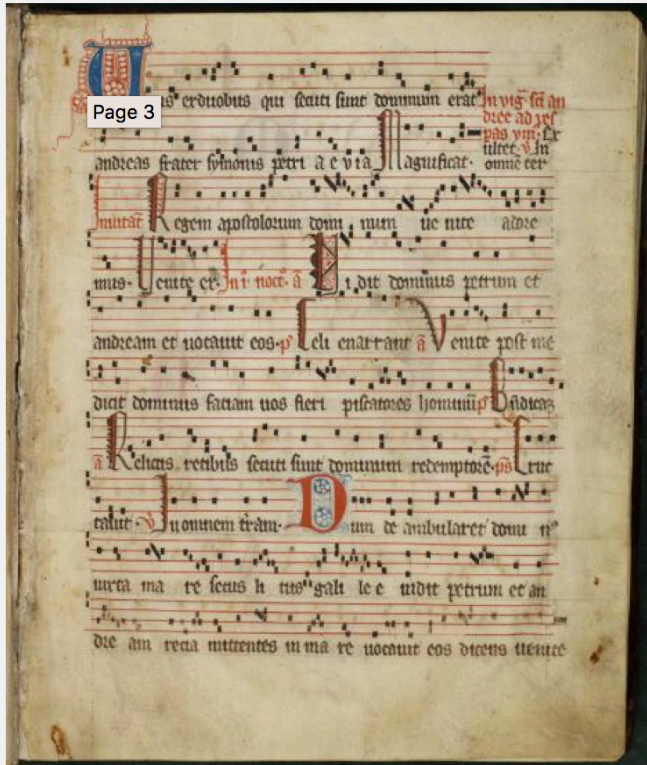 Page 3
Unus erduobus qui secuti sunt dominum erat In vig sci an
dree ad ves
pas ym Ex
ultet. V In
omnē ter
andreas frater symonis petri a e v i a Magnificat.
Inuitat Regem apostolorum domi num ue nite adore
mus. Venite ex. In i noct. ā Vi dit dominus petrum et
andream et uocauit eos. ps Celi enarrant ā Venite post me
dicit dominus faciam uos fieri piscatores hominū p Bn̄dicā
ā Relictis retibus secuti sunt dominum redemptorē. ps Eruc
tauit. V In omnem tr̄am. Dum de ambularet domi nꝰ
iuxta ma re secus li tus gali le e uidit petrum et an
dre am recia mittentes in ma re uocauit eos dicens uenite